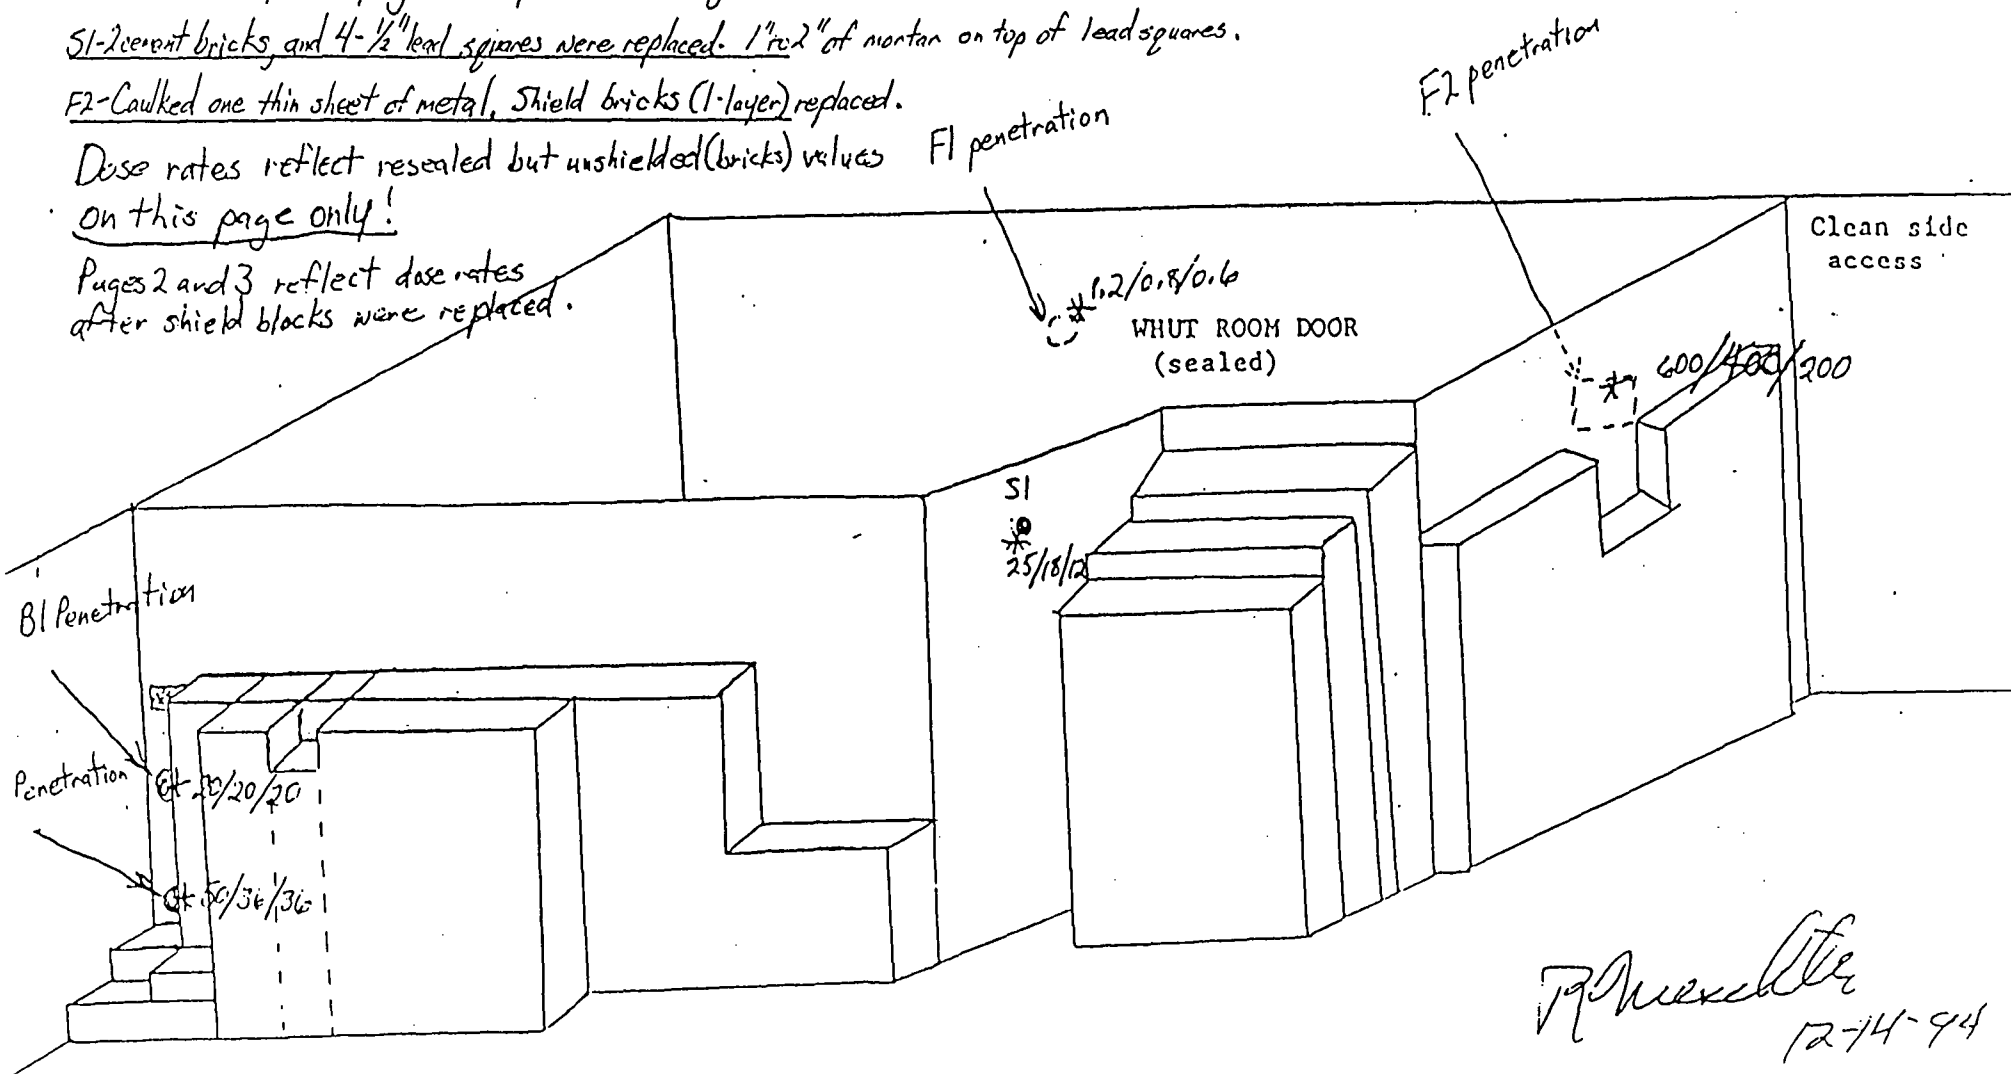 S1-2 cement bricks, and 4-1/2" lead squares were replaced. 1" to 2" of mortar on top of lead squares.
F2-Caulked one thin sheet of metal, Shield bricks (1-layer) replaced.
Dose rates reflect resealed but unshielded (bricks) values
on this page only!
Pages 2 and 3 reflect dose rates
after shield blocks were replaced.
F1 penetration
F2 penetration
Clean side
access
1.2/0.8/0.6
WHUT ROOM DOOR
(sealed)
600/400/200
S1
25/18/12
B1 Penetration
Penetration
20/20/20
50/36/36
12-14-94